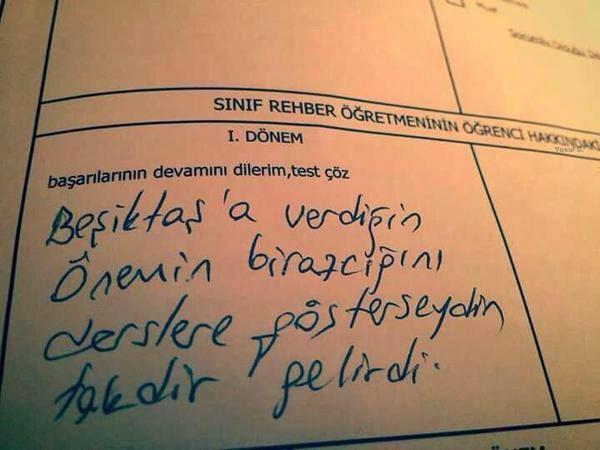 SINIF REHBER ÖĞRETMENİNİN ÖĞRENCİ HAKKINDAKİ
I. DÖNEM
başarılarının devamını dilerim,test çöz
Beşiktaş'a verdiğin
Önemin birazcığını
derslere gösterseydin
takdir gelirdi.